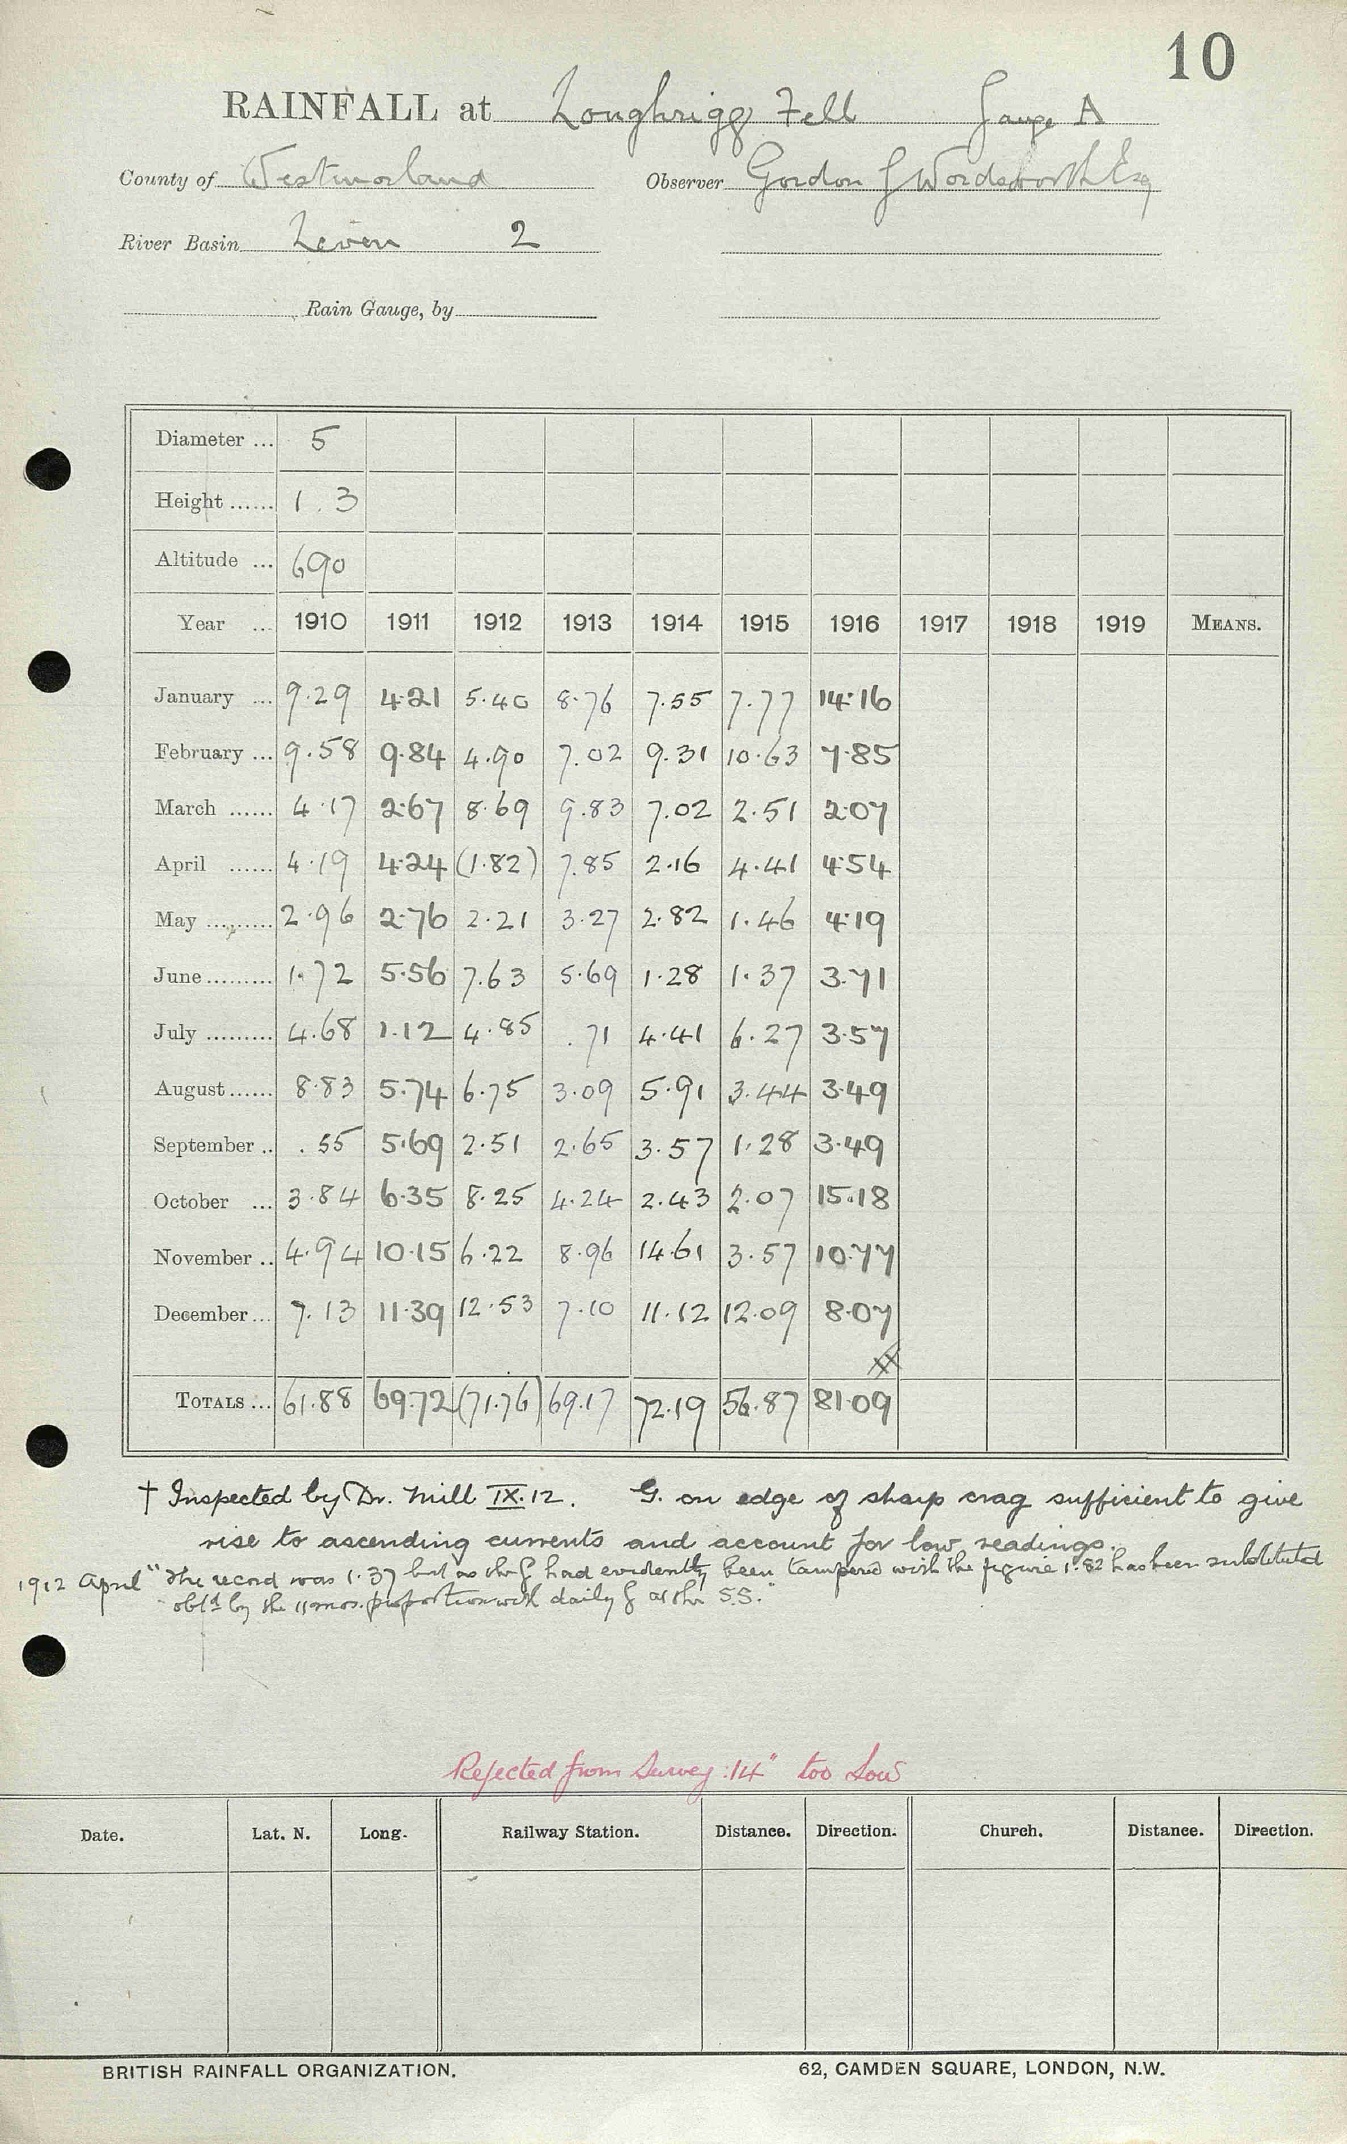 10
RAINFALL at Loughrigg Fell Gauge A
County of Westmorland Observer Gordon G Wordsworth Esq
River Basin Leven 2
Rain Gauge, by
Diameter ... 5
Height ...... 1.3
Altitude ... 690
Year ... 1910 1911 1912 1913 1914 1915 1916 1917 1918 1919 MEANS.
January ... 9.29 4.21 5.40 8.76 7.55 7.77 14.16
February ... 9.58 9.84 4.90 7.02 9.31 10.63 7.85
March ...... 4.17 2.67 8.69 9.83 7.02 2.51 2.07
April ...... 4.19 4.24 (1.82) 7.85 2.16 4.41 4.54
May ......... 2.96 2.76 2.21 3.27 2.82 1.46 4.19
June ......... 1.72 5.56 7.63 5.69 1.28 1.37 3.71
July ......... 4.68 1.12 4.85 .71 4.41 6.27 3.57
August ...... 8.83 5.74 6.75 3.09 5.91 3.44 3.49
September .. .55 5.69 2.51 2.65 3.57 1.28 3.49
October ... 3.84 6.35 8.25 4.24 2.43 2.07 15.18
November .. 4.94 10.15 6.22 8.96 14.61 3.57 10.77
December ... 7.13 11.39 12.53 7.10 11.12 12.09 8.07
TOTALS ... 61.88 69.72 (71.76) 69.17 72.19 56.87 81.09
† Inspected by Dr. Mill IX.12. G. on edge of sharp crag sufficient to give
rise to ascending currents and account for low readings.
1912 April "The record was 1.37 but as the G had evidently been tampered with the figure 1.82 has been substituted
obtd by the 11 mos. proportion with daily G at the S.S."
Rejected from Survey: 14" too low
Date. Lat. N. Long. Railway Station. Distance. Direction. Church. Distance. Direction.
BRITISH RAINFALL ORGANIZATION. 62, CAMDEN SQUARE, LONDON, N.W.